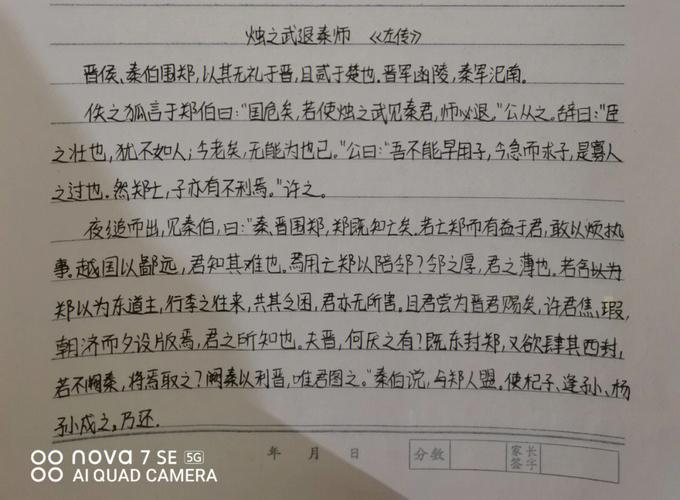 烛之武退秦师 《左传》
晋侯、秦伯围郑,以其无礼于晋,且贰于楚也.晋军函陵,秦军氾南.
佚之狐言于郑伯曰:"国危矣,若使烛之武见秦君,师必退."公从之.辞曰:"臣
之壮也,犹不如人;今老矣,无能为也已."公曰:"吾不能早用子,今急而求子,是寡人
之过也.然郑亡,子亦有不利焉."许之.
夜缒而出,见秦伯,曰:"秦、晋围郑,郑既知亡矣.若亡郑而有益于君,敢以烦执
事.越国以鄙远,君知其难也.焉用亡郑以陪邻?邻之厚,君之薄也.若舍以为
郑以为东道主,行李之往来,共其乏困,君亦无所害.且君尝为晋君赐矣,许君焦、瑕,
朝济而夕设版焉,君之所知也.夫晋,何厌之有?既东封郑,又欲肆其西封,
若不阙秦,将焉取之?阙秦以利晋,唯君图之."秦伯说,与郑人盟.使杞子、逢孙、杨
孙戍之,乃还.
年 月 日 分数 家长签字
nova 7 SE 5G
AI QUAD CAMERA